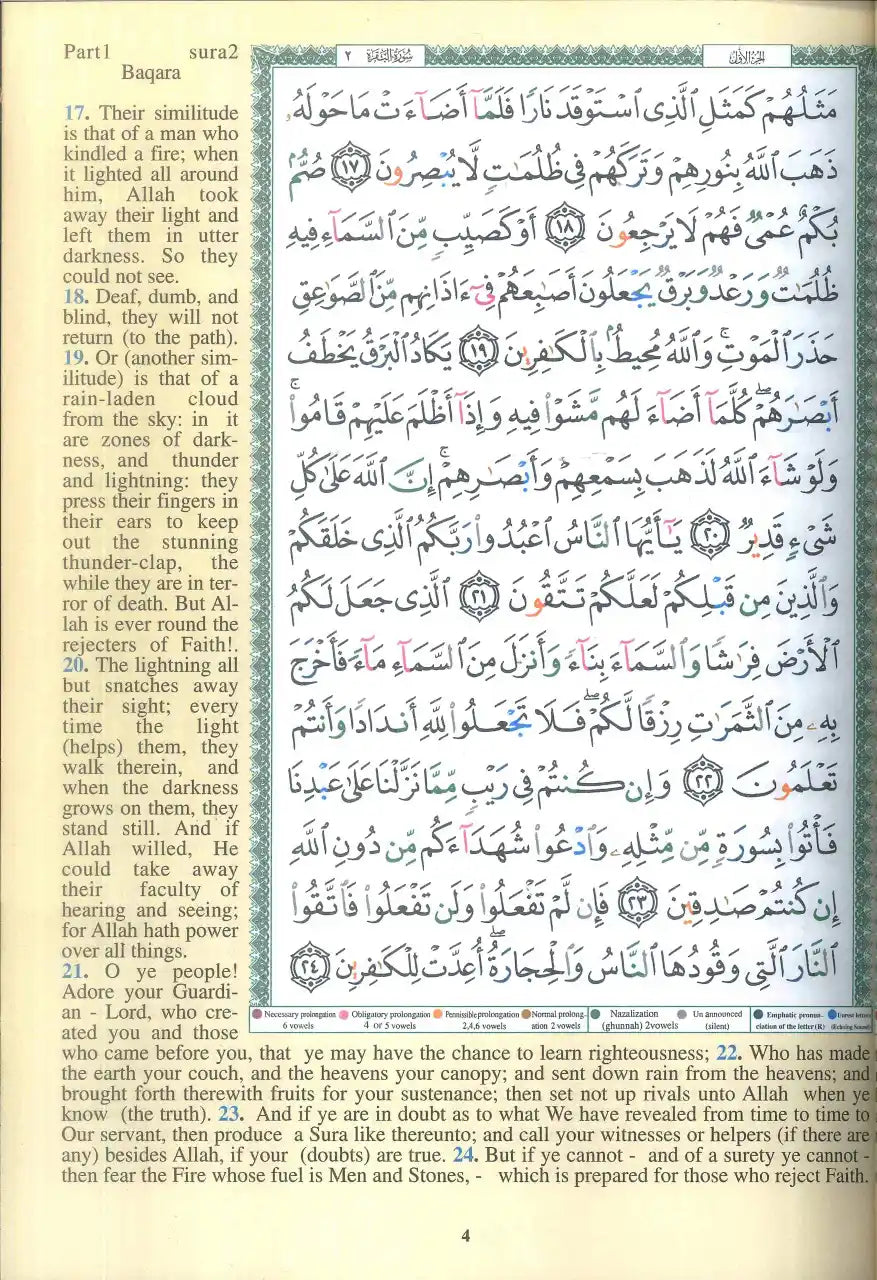 Part1 sura2
Baqara
17. Their similitude
is that of a man who
kindled a fire; when
it lighted all around
him, Allah took
away their light and
left them in utter
darkness. So they
could not see.
18. Deaf, dumb, and
blind, they will not
return (to the path).
19. Or (another sim-
ilitude) is that of a
rain-laden cloud
from the sky: in it
are zones of dark-
ness, and thunder
and lightning: they
press their fingers in
their ears to keep
out the stunning
thunder-clap, the
while they are in ter-
ror of death. But Al-
lah is ever round the
rejecters of Faith!.
20. The lightning all
but snatches away
their sight; every
time the light
(helps) them, they
walk therein, and
when the darkness
grows on them, they
stand still. And if
Allah willed, He
could take away
their faculty of
hearing and seeing;
for Allah hath power
over all things.
21. O ye people!
Adore your Guardi-
an - Lord, who cre-
ated you and those
who came before you, that ye may have the chance to learn righteousness; 22. Who has made
the earth your couch, and the heavens your canopy; and sent down rain from the heavens; and
brought forth therewith fruits for your sustenance; then set not up rivals unto Allah when ye
know (the truth). 23. And if ye are in doubt as to what We have revealed from time to time to
Our servant, then produce a Sura like thereunto; and call your witnesses or helpers (if there are
any) besides Allah, if your (doubts) are true. 24. But if ye cannot - and of a surety ye cannot -
then fear the Fire whose fuel is Men and Stones, - which is prepared for those who reject Faith.
الجزء الأول سورة البقرة ٢
مَثَلُهُمْ كَمَثَلِ ٱلَّذِى ٱسْتَوْقَدَ نَارًا فَلَمَّآ أَضَآءَتْ مَا حَوْلَهُۥ
ذَهَبَ ٱللَّهُ بِنُورِهِمْ وَتَرَكَهُمْ فِى ظُلُمَٰتٍ لَّا يُبْصِرُونَ ١٧ صُمٌّۢ
بُكْمٌ عُمْىٌ فَهُمْ لَا يَرْجِعُونَ ١٨ أَوْ كَصَيِّبٍ مِّنَ ٱلسَّمَآءِ فِيهِ
ظُلُمَٰتٌ وَرَعْدٌ وَبَرْقٌ يَجْعَلُونَ أَصَٰبِعَهُمْ فِىٓ ءَاذَانِهِم مِّنَ ٱلصَّوَٰعِقِ
حَذَرَ ٱلْمَوْتِ ۚ وَٱللَّهُ مُحِيطٌۢ بِٱلْكَٰفِرِينَ ١٩ يَكَادُ ٱلْبَرْقُ يَخْطَفُ
أَبْصَٰرَهُمْ ۖ كُلَّمَآ أَضَآءَ لَهُم مَّشَوْا۟ فِيهِ وَإِذَآ أَظْلَمَ عَلَيْهِمْ قَامُوا۟ ۚ
وَلَوْ شَآءَ ٱللَّهُ لَذَهَبَ بِسَمْعِهِمْ وَأَبْصَٰرِهِمْ ۚ إِنَّ ٱللَّهَ عَلَىٰ كُلِّ
شَىْءٍ قَدِيرٌ ٢٠ يَٰٓأَيُّهَا ٱلنَّاسُ ٱعْبُدُوا۟ رَبَّكُمُ ٱلَّذِى خَلَقَكُمْ
وَٱلَّذِينَ مِن قَبْلِكُمْ لَعَلَّكُمْ تَتَّقُونَ ٢١ ٱلَّذِى جَعَلَ لَكُمُ
ٱلْأَرْضَ فِرَٰشًا وَٱلسَّمَآءَ بِنَآءً وَأَنزَلَ مِنَ ٱلسَّمَآءِ مَآءً فَأَخْرَجَ
بِهِۦ مِنَ ٱلثَّمَرَٰتِ رِزْقًا لَّكُمْ ۖ فَلَا تَجْعَلُوا۟ لِلَّهِ أَندَادًا وَأَنتُمْ
تَعْلَمُونَ ٢٢ وَإِن كُنتُمْ فِى رَيْبٍ مِّمَّا نَزَّلْنَا عَلَىٰ عَبْدِنَا
فَأْتُوا۟ بِسُورَةٍ مِّن مِّثْلِهِۦ وَٱدْعُوا۟ شُهَدَآءَكُم مِّن دُونِ ٱللَّهِ
إِن كُنتُمْ صَٰدِقِينَ ٢٣ فَإِن لَّمْ تَفْعَلُوا۟ وَلَن تَفْعَلُوا۟ فَٱتَّقُوا۟
ٱلنَّارَ ٱلَّتِى وَقُودُهَا ٱلنَّاسُ وَٱلْحِجَارَةُ ۖ أُعِدَّتْ لِلْكَٰفِرِينَ ٢٤
Necessary prolongation 6 vowels
Obligatory prolongation 4 or 5 vowels
Permissible prolongation 2,4,6 vowels
Normal prolong-ation 2 vowels
Nazalization (ghunnah) 2vowels
Un announced (silent)
Emphatic pronun-ciation of the letter (R)
Unrest letters (Echoing Sound)
4